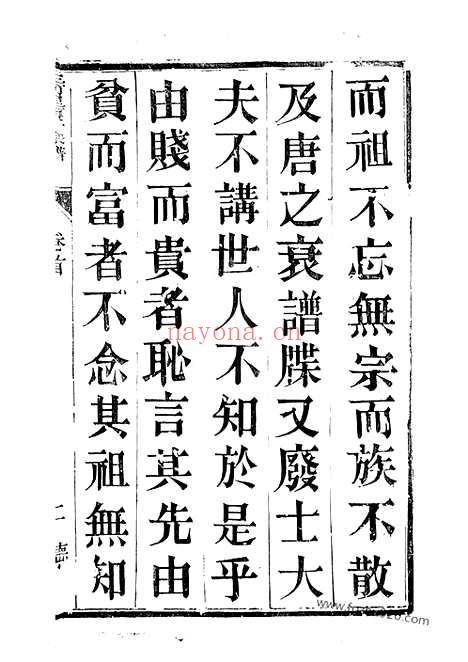 而祖不忘無宗而族不散
及唐之衰譜牒又廢士大
夫不講世人不知於是乎
由賤而貴者恥言其先由
貧而富者不念其祖無知
卷首
nayona.cn